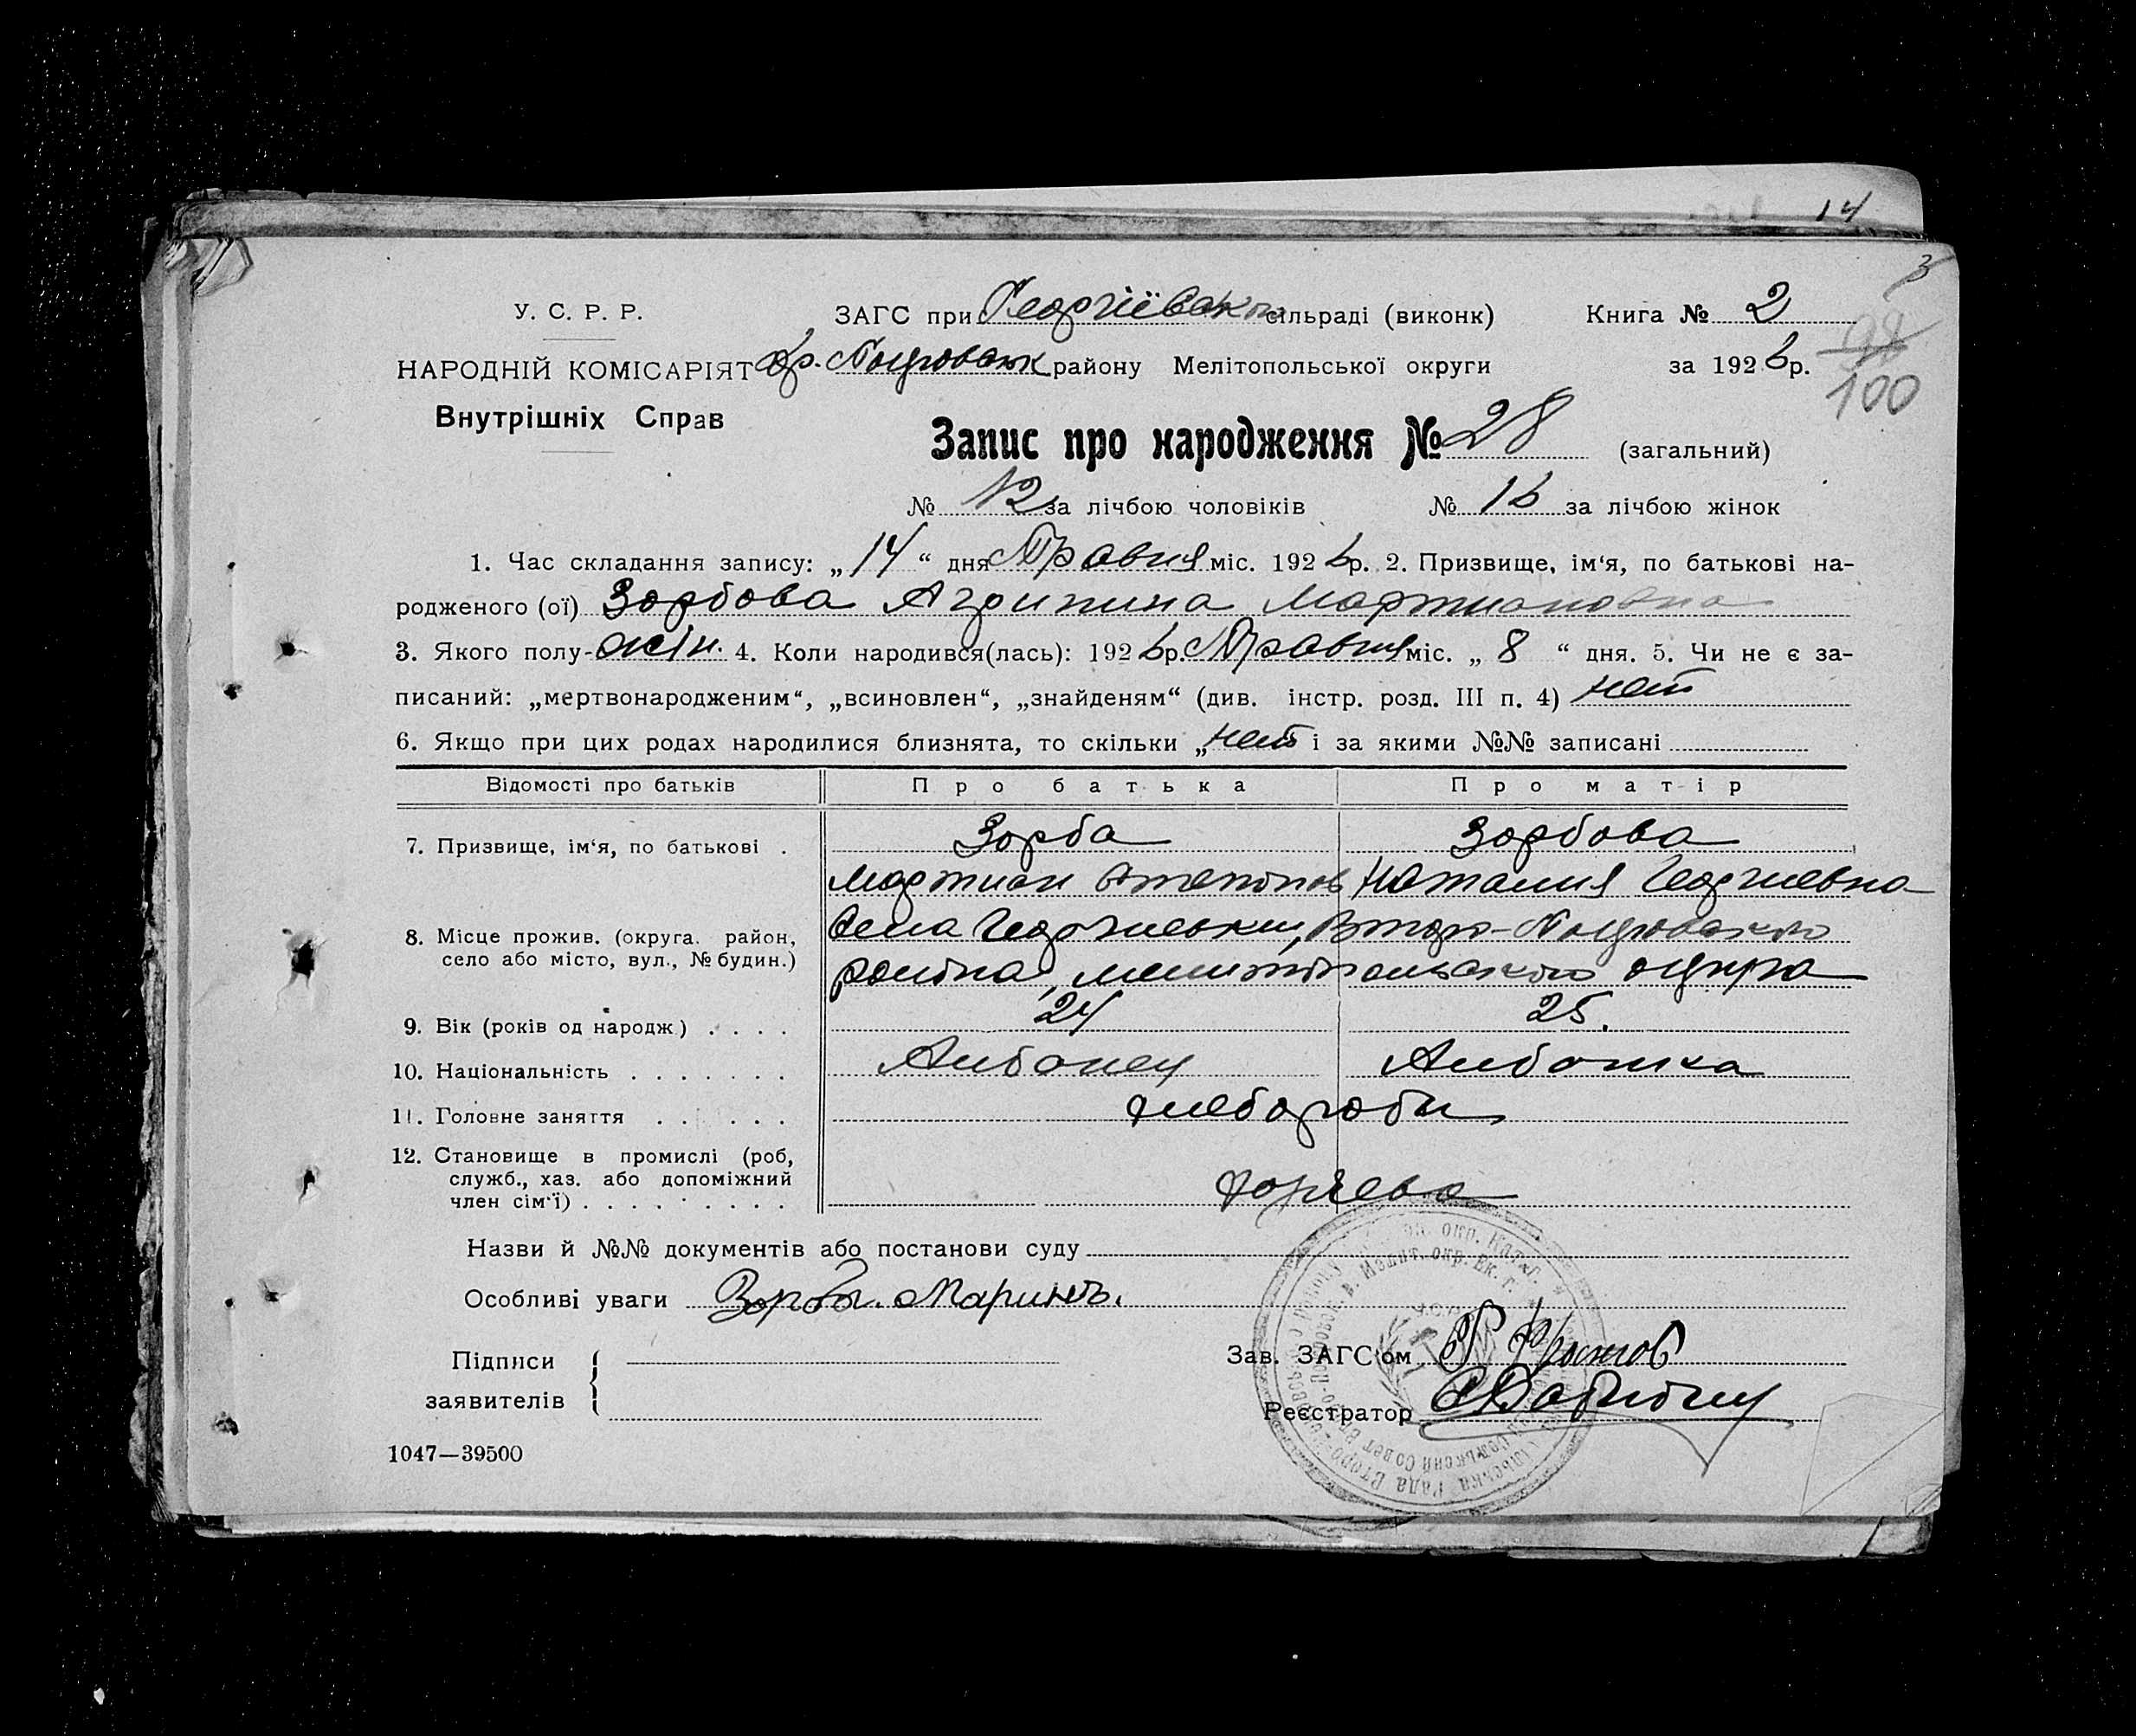 14
3
У. С. Р. Р.
ЗАГС при Георгіївськ сільраді (виконк)
Книга № 2
98
НАРОДНІЙ КОМІСАРІЯТ
Вр. Покровськ району Мелітопольської округи
за 1926 р.
100
Внутрішніх Справ
Запис про народження № 28 (загальний)
№ 12 за лічбою чоловіків № 16 за лічбою жінок
1. Час складання запису: „14“ дня Травня міс. 1926 р. 2. Призвище, ім‘я, по батькові на-
родженого (ої) Зорбова Агрипина Мартиановна
3. Якого полу- жін. 4. Коли народився(лась): 1926 р. Травня міс. „8“ дня. 5. Чи не є за-
писаний: „мертвонародженим“, „всиновлен“, „знайденям“ (див. інстр. розд. III п. 4) нет
6. Якщо при цих родах народилися близнята, то скільки „нет і за якими №№ записані
Відомості про батьків Про батька Про матір
7. Призвище, ім‘я, по батькові . Зорба Зорбова
Мартиан Степанов Наталия Георгиевна
8. Місце прожив. (округа. район, село або місто, вул., № будин.) Села Георгиевки, Второ-Покровского
района, мелитопольского округа
9. Вік (років од народж) . . . . 24 25.
10. Національність . . . . . . . Албанец Албанка
11. Головне заняття . . . . . . хлебороби
12. Становище в промислі (роб,
служб., хаз. або допоміжний
член сім‘ї) . . . . . . . . .
Назви й №№ документів або постанови суду
Особливі уваги Зорбы. Маринъ.
Підписи
заявителів
Зав. ЗАГС‘ом
Реєстратор
1047—39500